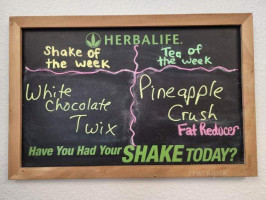 HERBALIFE.
Shake of
the week
Tea of
the week
White
Chocolate
Twix
Pineapple
Crush
Fat Reducer
Have You Had Your SHAKE TODAY?